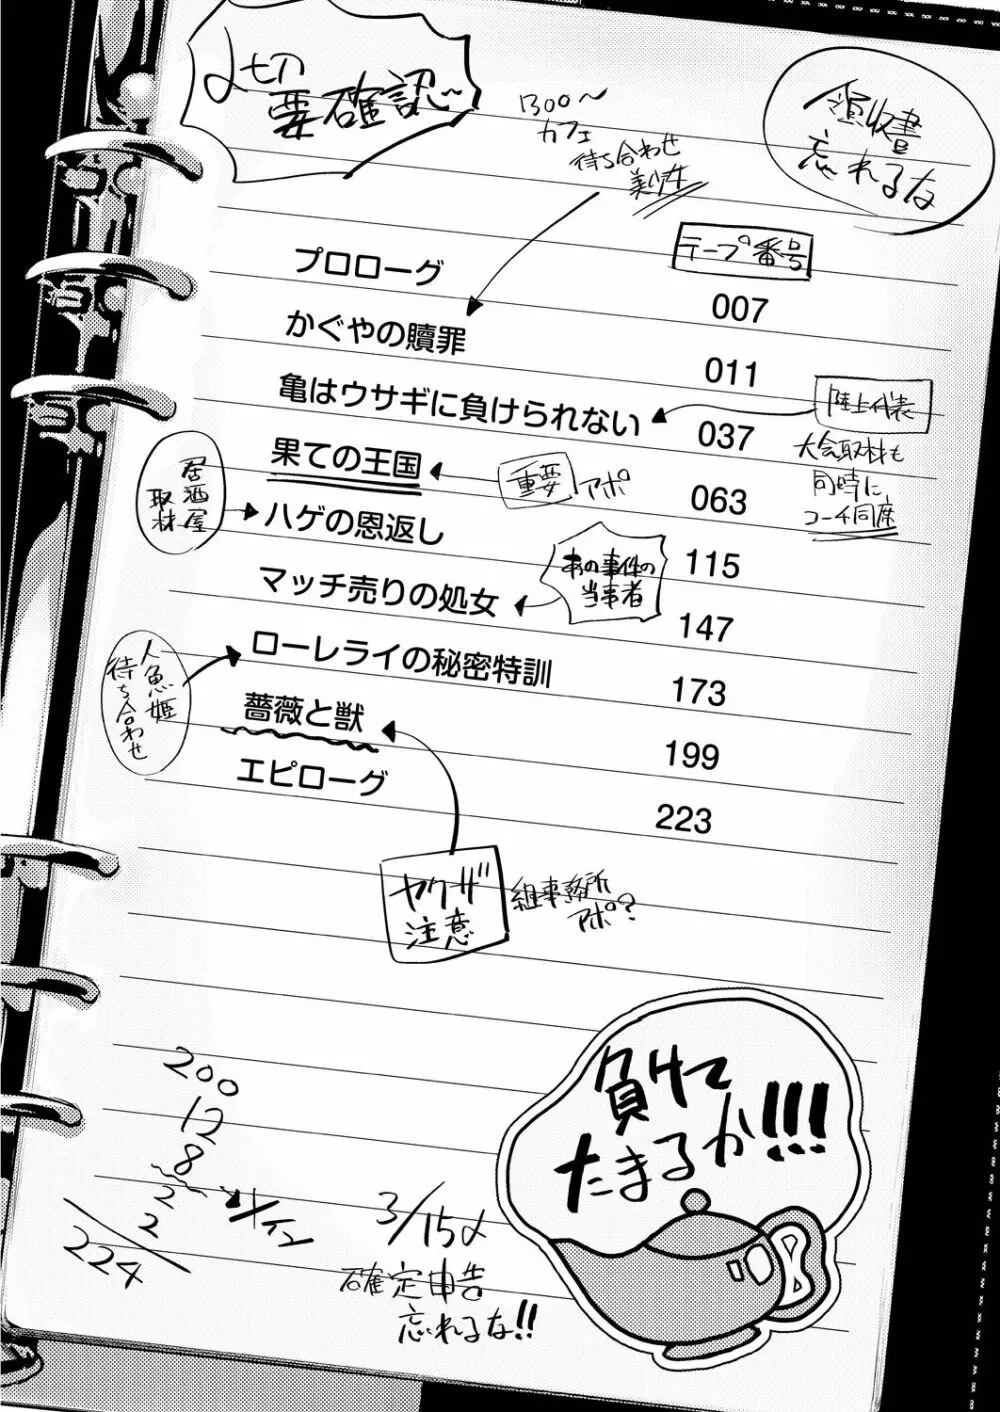 〆切
要確認
1300〜
カフェ
待ち合わせ
美少女
領収書
忘れるな
テープ番号
プロローグ 007
かぐやの贖罪 011
亀はウサギに負けられない 037
陸上代表
大会取材も
同時に、
コーチ同席
果ての王国 063
重要 アポ
居酒屋
取材
ハゲの恩返し 115
あの事件の
当事者
マッチ売りの処女 147
人魚姫
待ち合わせ
ローレライの秘密特訓 173
薔薇と獣 199
エピローグ 223
ヤクザ
注意
組事務所
アポ?
負けて
たまるか!!!
200
12
8
2
2
224
3/15〆
確定申告
忘れるな!!